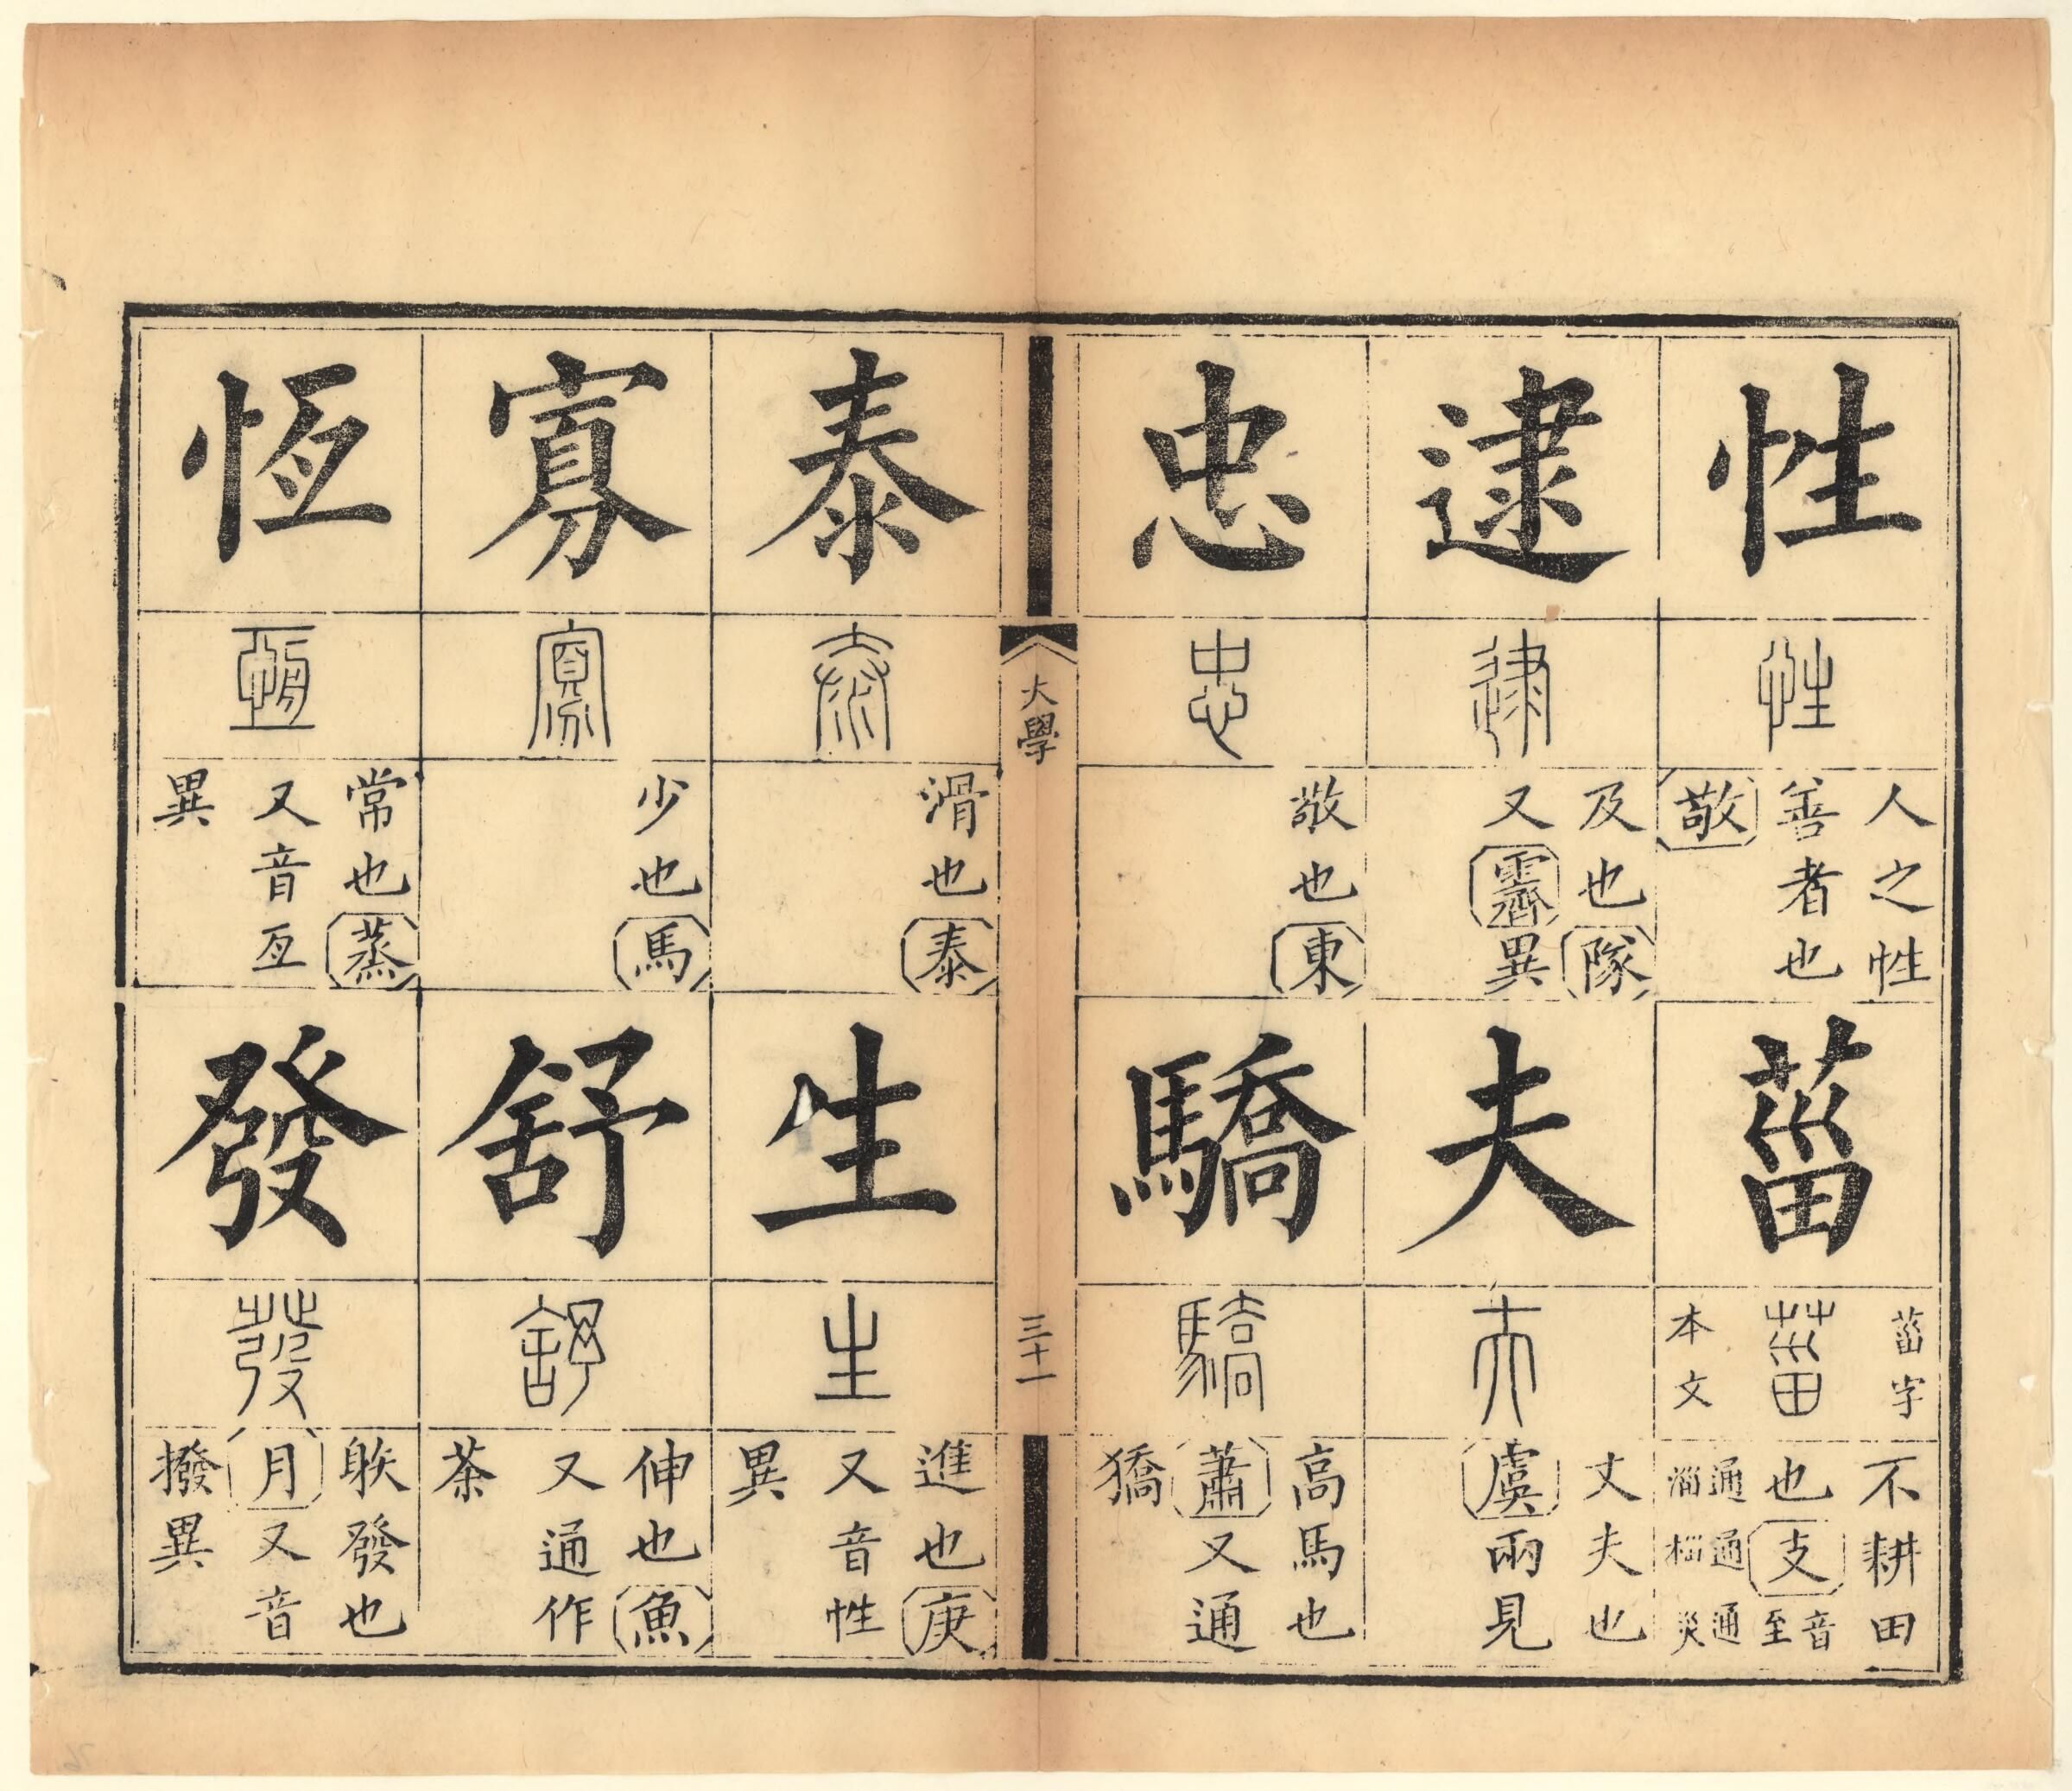 性
性
人之性
善者也
敬
菑
菑字
菑
本文
不耕田
也支音至
通淄
通椔
通災
逮
逮
及也隊
又霽異
夫
夫
丈夫也
虞兩見
忠
忠
敬也東
驕
驕
高馬也
蕭又通
獢
大學
三十一
泰
泰
滑也泰
生
生
進也庚
又音性
異
寡
寡
少也馬
舒
舒
伸也魚
又通作
荼
恆
恆
常也蒸
又音亙
異
發
發
躲發也
月又音
撥異